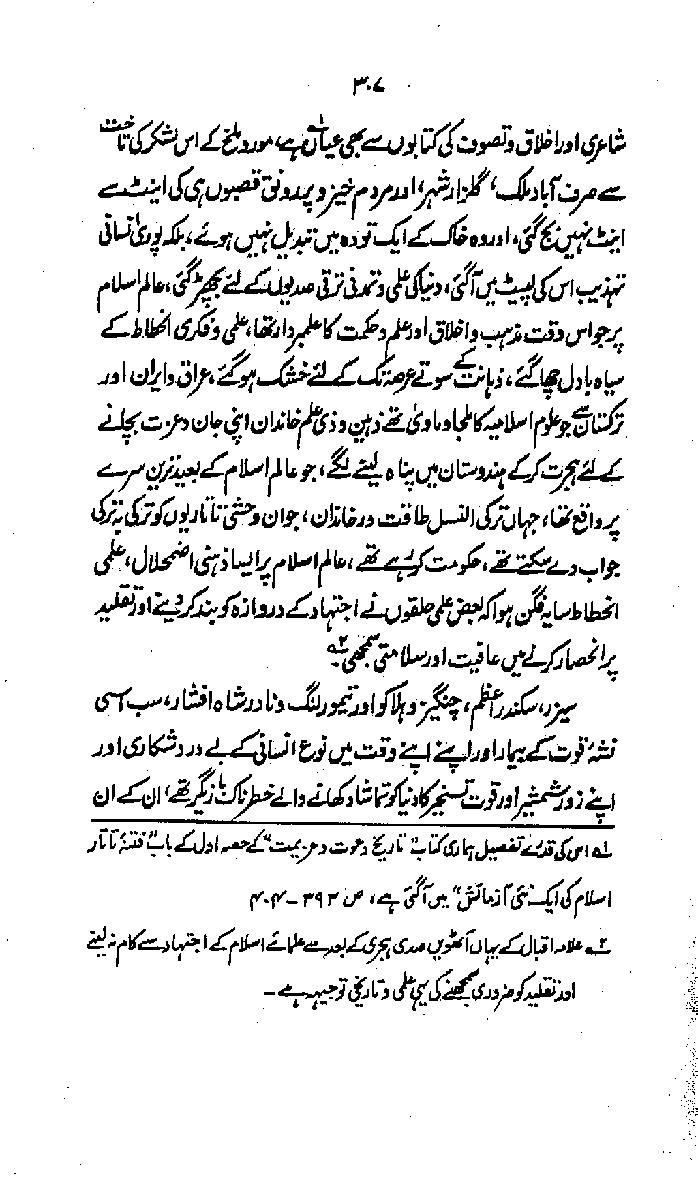 ۳۰۷
شاعری اور اخلاق و تصوف کی کتابوں سے بھی عیاں ہے، مور و ملخ کے اس لشکر کی تاخت
سے صرف آباد ملک، گلزار شہر، اور مردم خیز و پررونق قصبوں ہی کی اینٹ سے
اینٹ نہیں بج گئی، اور وہ خاک کے ایک تودہ میں تبدیل نہیں ہوئے، بلکہ پوری انسانی
تہذیب اس کی لپیٹ میں آگئی، دنیا کی علمی و تمدنی ترقی صدیوں کے لئے پچھڑ گئی، عالم اسلام
پر جو اس وقت مذہب و اخلاق اور علم و حکمت کا علمبردار تھا، علمی و فکری انحطاط کے
سیاہ بادل چھا گئے، ذہانت کے سوتے عرصہ تک کے لئے خشک ہو گئے، عراق و ایران اور
ترکستان سے جو علوم اسلامیہ کا ملجا و ماویٰ تھے ذہین و ذی علم خاندان اپنی جان و عزت بچانے
کے لئے ہجرت کر کے ہندوستان میں پناہ لینے لگے، جو عالم اسلام کے بعید ترین سرے
پر واقع تھا، جہاں ترکی النسل طاقت ور خاندان، جو ان وحشی تاتاریوں کو ترکی بہ ترکی
جواب دے سکتے تھے، حکومت کر رہے تھے، عالم اسلام پر ایسا ذہنی اضمحلال، علمی
انحطاط سایہ فگن ہوا کہ بعض علمی حلقوں نے اجتہاد کے دروازہ کو بند کر دینے اور تقلید
پر انحصار کرنے میں عافیت اور سلامتی سمجھی ۲؎
سیزر، سکندر اعظم، چنگیز و ہلاکو اور تیمور لنگ و نادر شاہ افشار، سب اسی
نشۂ قوت کے بیمار اور اپنے اپنے وقت میں نوع انسانی کے بے درد شکاری اور
اپنے زور شمشیر اور قوت تسخیر کا دنیا کو تماشا دکھانے والے خطرناک بازیگر تھے، ان کے ان
۱؎ اس کی قدرے تفصیل ہماری کتاب "تاریخ دعوت و عزیمت" کے حصہ اول کے باب "فتنۂ تاتار
اسلام کی ایک نئی آزمائش" میں آگئی ہے، ص ۳۹۲-۴۰۴
۲؎ علامہ اقبال کے یہاں آٹھویں صدی ہجری کے بعد سے علمائے اسلام کے اجتہاد سے کام نہ لینے
اور تقلید کو ضروری سمجھنے کی یہی علمی و تاریخی توجیہہ ہے۔